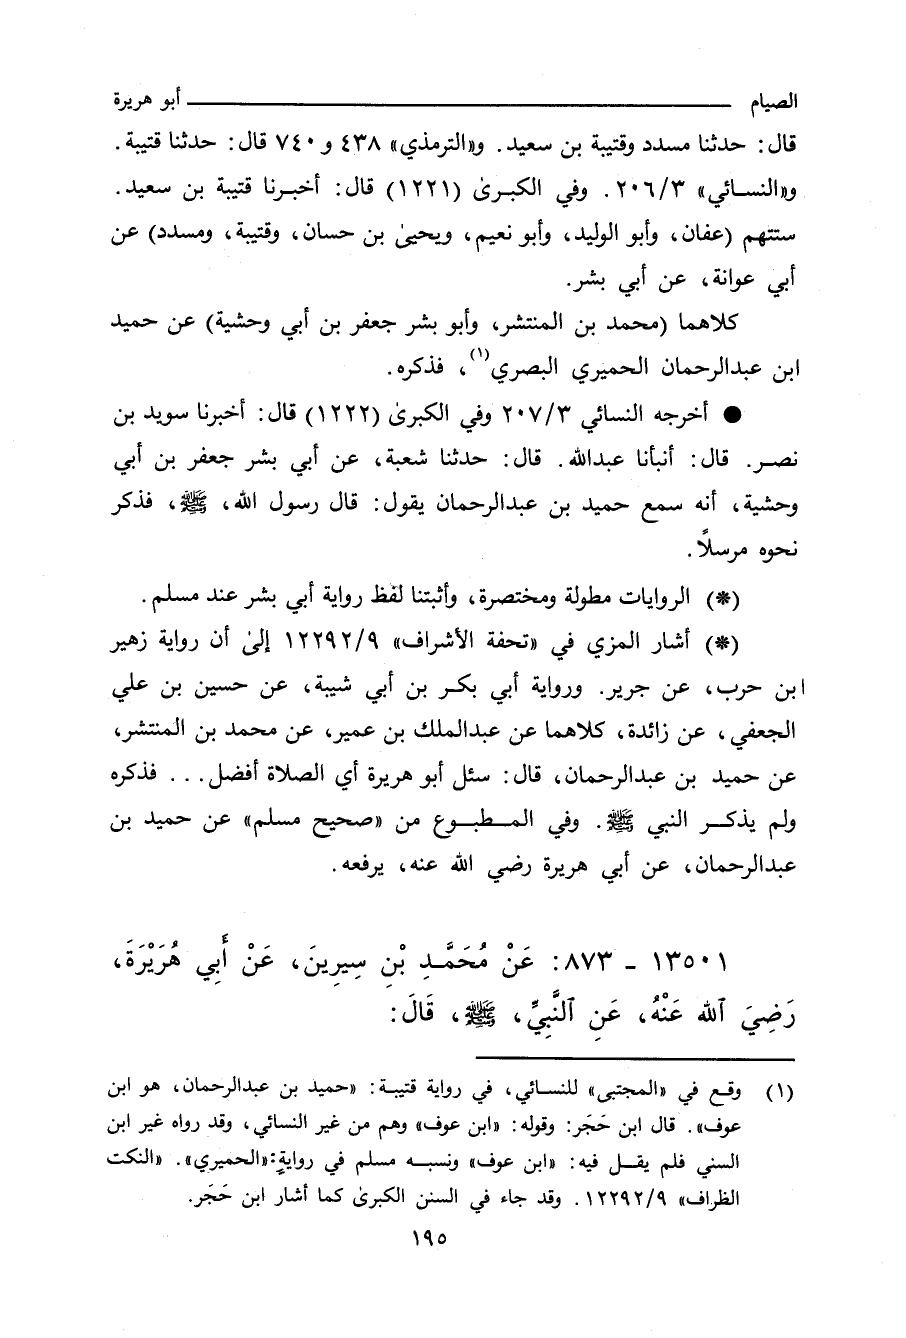 الصيام ــــــــــ أبو هريرة
قال: حدثنا مسدد وقتيبة بن سعيد. و«الترمذي» ٤٣٨ و ٧٤٠ قال: حدثنا قتيبة.
و«النسائي» ٢٠٦/٣. وفي الكبرىٰ (١٢٢١) قال: أخبرنا قتيبة بن سعيد.
ستتهم (عفان، وأبو الوليد، وأبو نعيم، ويحيىٰ بن حسان، وقتيبة، ومسدد) عن
أبي عوانة، عن أبي بشر.
كلاهما (محمد بن المنتشر، وأبو بشر جعفر بن أبي وحشية) عن حميد
ابن عبدالرحمان الحميري البصري(١)، فذكره.
● أخرجه النسائي ٢٠٧/٣ وفي الكبرىٰ (١٢٢٢) قال: أخبرنا سويد بن
نصر. قال: أنبأنا عبدالله. قال: حدثنا شعبة، عن أبي بشر جعفر بن أبي
وحشية، أنه سمع حميد بن عبدالرحمان يقول: قال رسول الله، ﷺ، فذكر
نحوه مرسلاً.
(*) الروايات مطولة ومختصرة، وأثبتنا لفظ رواية أبي بشر عند مسلم.
(*) أشار المزي في «تحفة الأشراف» ١٢٢٩٢/٩ إلىٰ أن رواية زهير
ابن حرب، عن جرير. ورواية أبي بكر بن أبي شيبة، عن حسين بن علي
الجعفي، عن زائدة، كلاهما عن عبدالملك بن عمير، عن محمد بن المنتشر،
عن حميد بن عبدالرحمان، قال: سئل أبو هريرة أي الصلاة أفضل... فذكره
ولم يذكر النبي ﷺ. وفي المطبوع من «صحيح مسلم» عن حميد بن
عبدالرحمان، عن أبي هريرة رضي الله عنه، يرفعه.
١٣٥٠١ - ٨٧٣: عَنْ مُحَمَّدِ بْنِ سِيرِينَ، عَنْ أَبِي هُرَيْرَةَ،
رَضِيَ ٱللهُ عَنْهُ، عَنِ ٱلنَّبِيِّ، ﷺ، قَالَ:
(١) وقع في «المجتبى» للنسائي، في رواية قتيبة: «حميد بن عبدالرحمان، هو ابن
عوف». قال ابن حَجَر: وقوله: «ابن عوف» وهم من غير النسائي، وقد رواه غير ابن
السني فلم يقل فيه: «ابن عوف» ونسبه مسلم في روايةٍ:«الحميري». «النكت
الظراف» ١٢٢٩٢/٩. وقد جاء في السنن الكبرىٰ كما أشار ابن حَجَر.
١٩٥